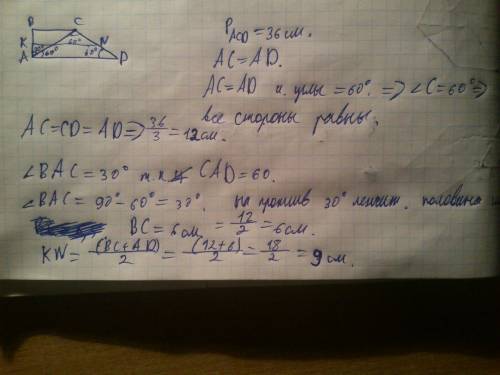 B C
K N
A 30° 60° 60° 60° D
P_ACD = 36 см.
AC = AD.
AC = AD и углы = 60° ⇒ ∠C = 60° ⇒
все стороны равны.
AC = CD = AD ⇒ 36/3 = 12 см.
∠BAC = 30° т.к. ∠CAD = 60.
∠BAC = 90° - 60° = 30°. на против 30° лежит половина
BC = 6 см = 12/2 = 6 см.
KN = (BC + AD)/2 = (12 + 6)/2 = 18/2 = 9 см.